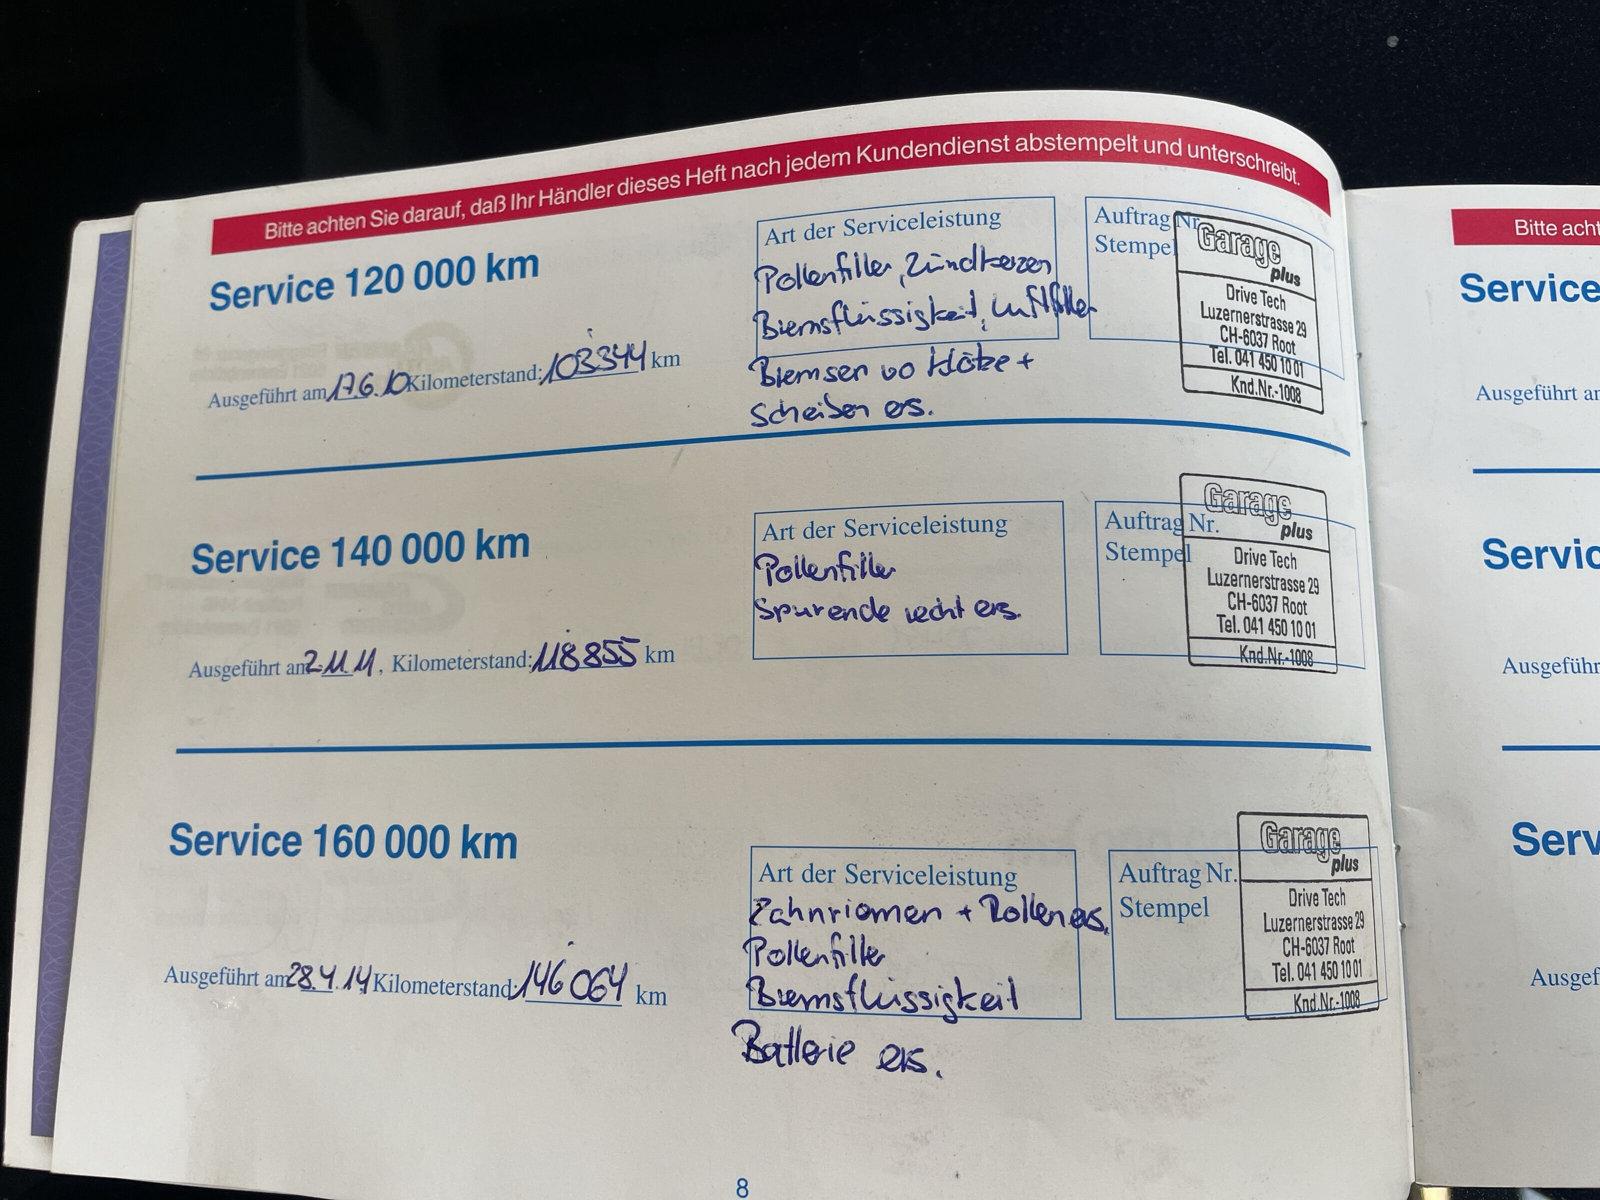 Bitte achten Sie darauf, daß Ihr Händler dieses Heft nach jedem Kundendienst abstempelt und unterschreibt.
Service 120 000 km
Ausgeführt am 17.6.10 Kilometerstand: 103344 km
Art der Serviceleistung
Pollenfilter, Zündkerzen
Bremsflüssigkeit, Luftfilter
Bremsen vo Klötze +
Scheiben ers.
Auftrag Nr.
Stempel
Garage
plus
Drive Tech
Luzernerstrasse 29
CH-6037 Root
Tel. 041 450 10 01
Knd.Nr.-1008
Service 140 000 km
Ausgeführt am 2.11.11. Kilometerstand: 118855 km
Art der Serviceleistung
Pollenfilter
Spurende recht ers.
Auftrag Nr.
Stempel
Garage
plus
Drive Tech
Luzernerstrasse 29
CH-6037 Root
Tel. 041 450 10 01
Knd.Nr.-1008
Service 160 000 km
Ausgeführt am 28.4.14 Kilometerstand: 146064 km
Art der Serviceleistung
Zahnriemen + Rollen ers.
Pollenfilter
Bremsflüssigkeit
Batterie ers.
Auftrag Nr.
Stempel
Garage
plus
Drive Tech
Luzernerstrasse 29
CH-6037 Root
Tel. 041 450 10 01
Knd.Nr.-1008
8
Bitte acht
Service
Ausgeführt am
Servic
Ausgeführ
Serv
Ausgef